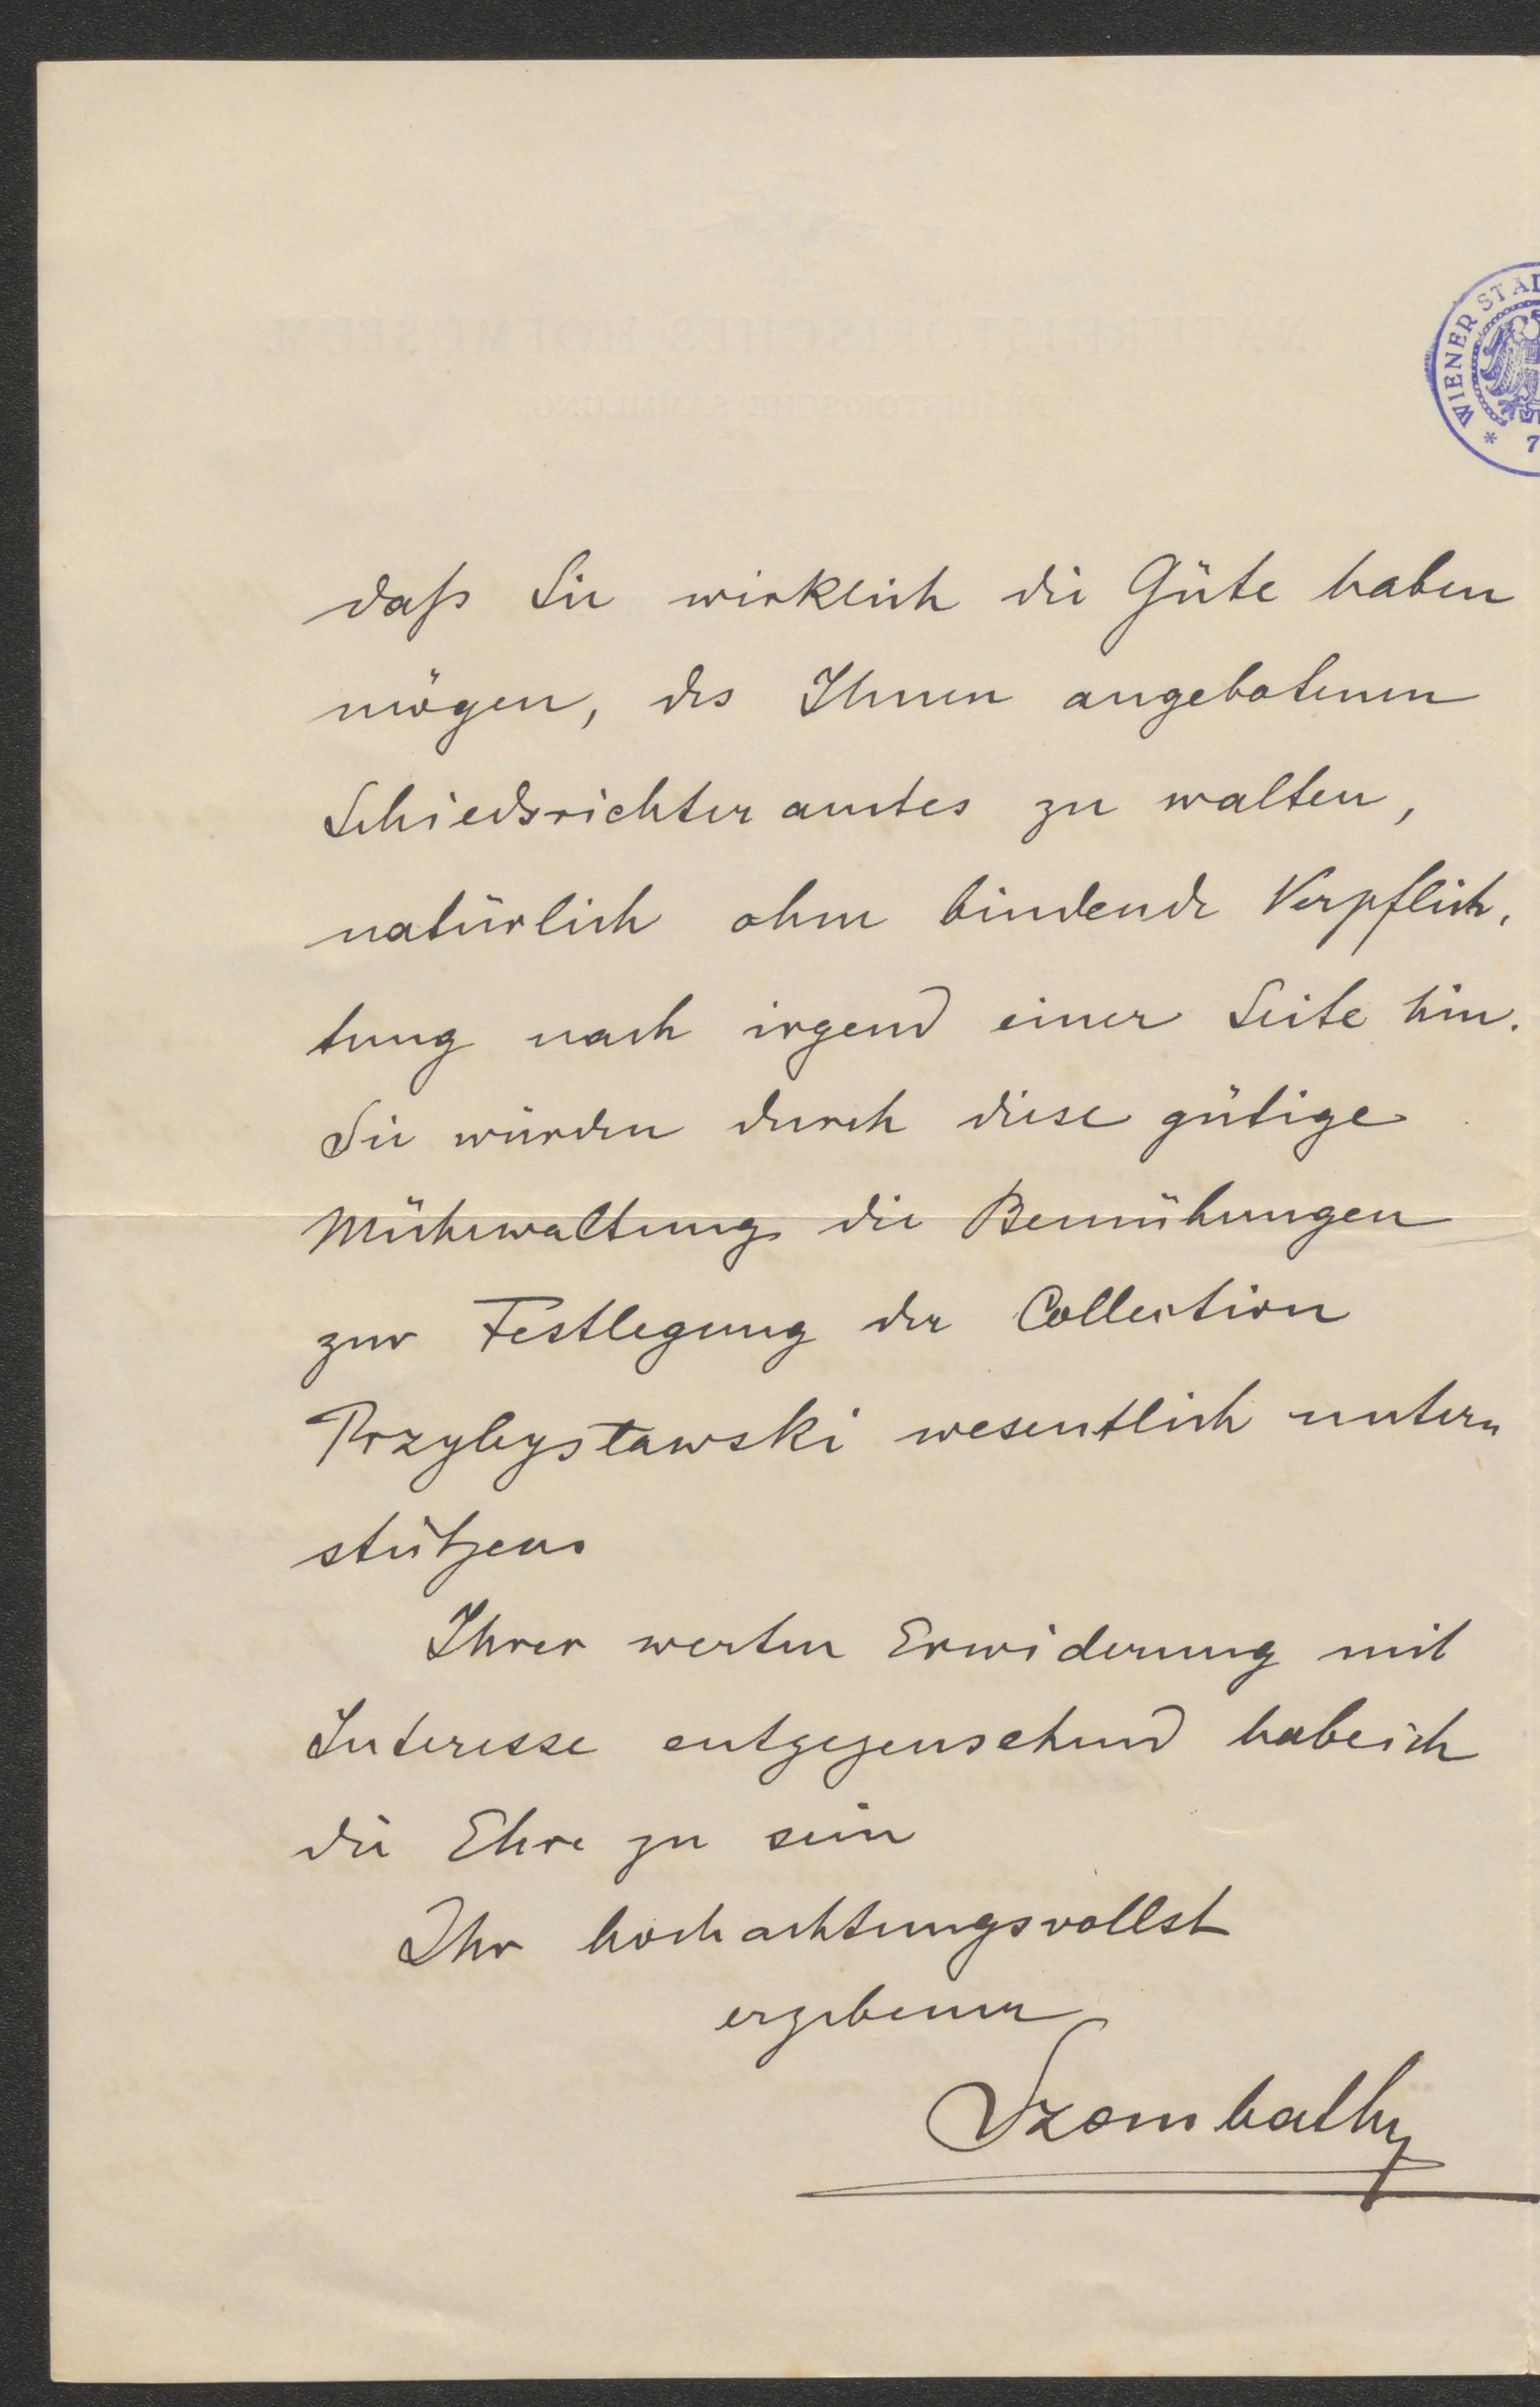 WIENER STAD
* 7
daß Sie wirklich die Güte haben
mögen, des Ihnen angebotenen
Schiedsrichteramtes zu walten,
natürlich ohne bindende Verpflich-
tung nach irgend einer Seite hin.
Sie würden durch diese gütige
Mühewaltung die Bemühungen
zur Festlegung der Collection
Przybysławski wesentlich unter-
stützen.
Ihrer werten Erwiderung mit
Interesse entgegensehend habe ich
die Ehre zu sein
Ihr hochachtungsvollst
ergebener
Szombathy